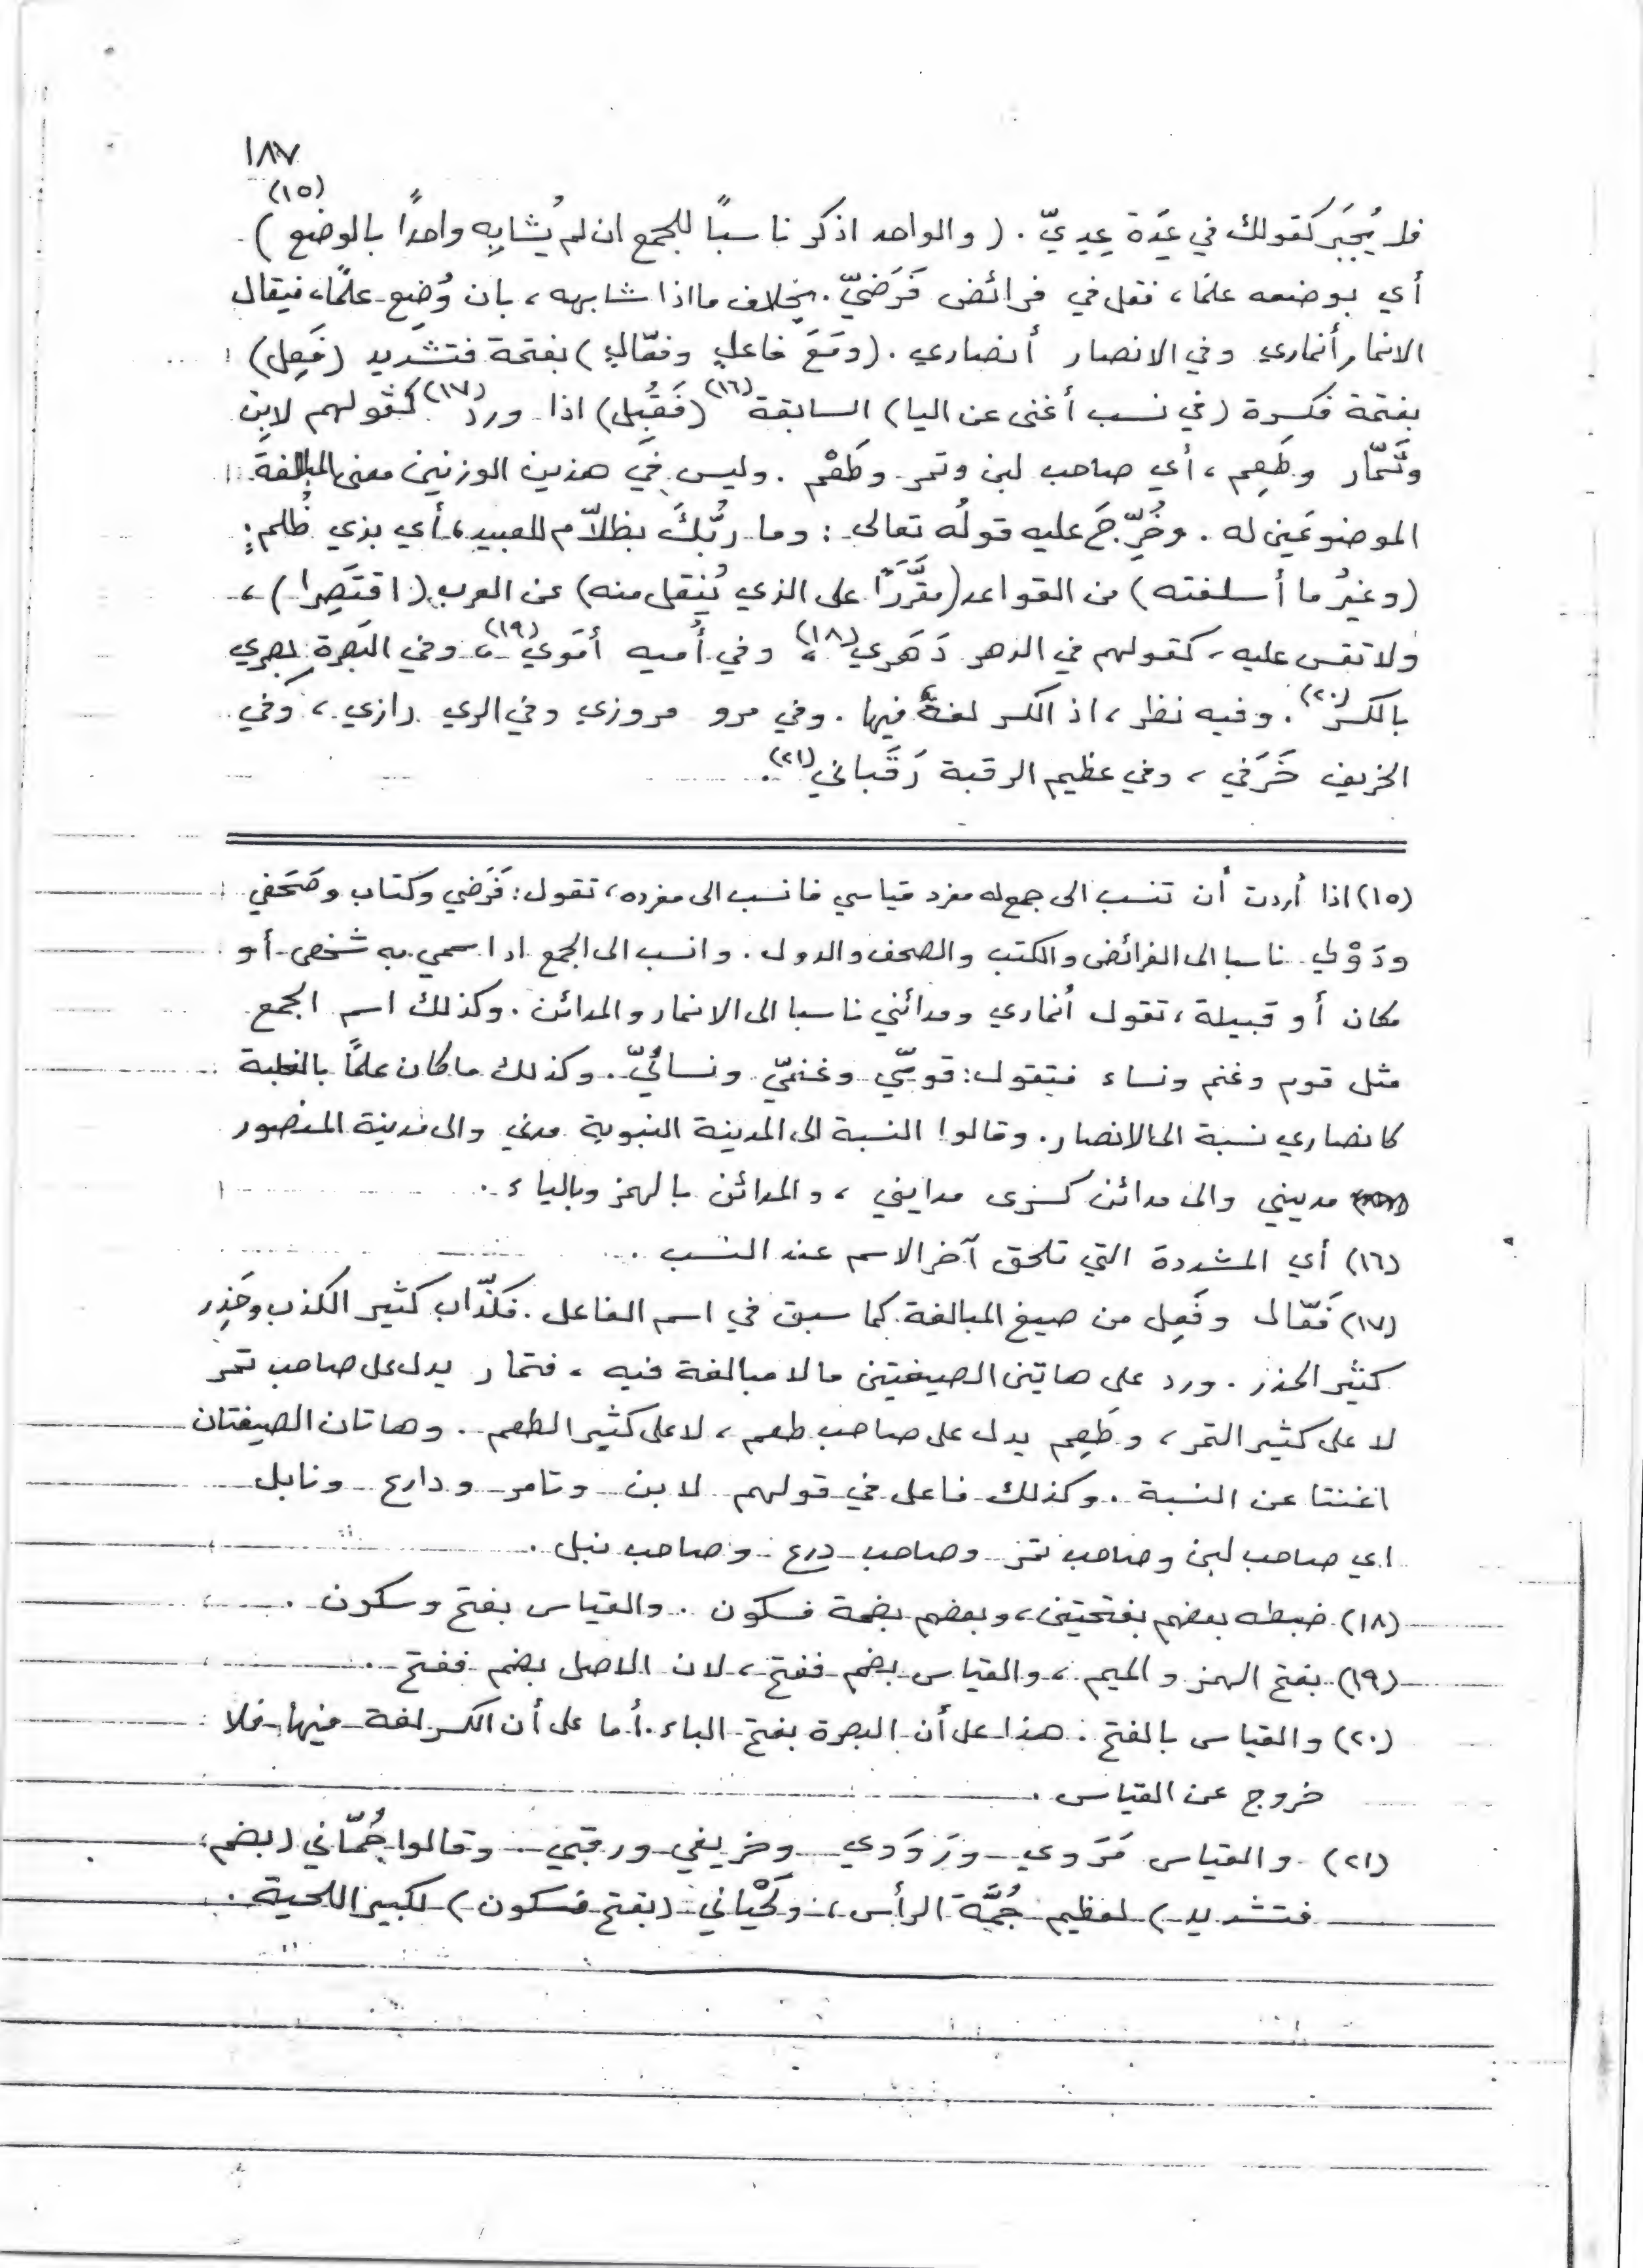 ١٨٧
فلا يُجبَر كقولك في عِدَة عِدِيّ . (والواحد اذكر ناسبًا للجمع ان لم يُشابِه واحدًا بالوضع) (١٥)
أي بوضعه علمًا، فقل في فرائض فَرَضيّ . بخلاف ما اذا شابهه، بان وُضِع علمًا، فيقال
الانمار أنماري وفي الانصار أنصاري . (ومَعَ فاعلٍ وفعّالٍ) بفتحة فتشديد (فَعِل)
بفتحة فكسرة (في نسب أغنى عن اليا) السابقة (١٦) (فَقُبِل) اذا ورد (١٧) كقولهم لابِن
وتَمّار وطَعِم، أي صاحب لبن وتمر وطَعْم . وليس في هذين الوزنين معنى المبالغة
الموضوعَين له . وخُرِّجَ عليه قولُه تعالى : وما ربُّكَ بظلاّم للعبيد، أي بذي ظُلم .
(وغيرُ ما أسلفته) من القواعد (مقَرَّرًا على الذي يُنقل منه) عن العرب (اقتَصِرا)،
ولا تقس عليه، كقولهم في الدهر دَهَري (١٨)، وفي أُميه أمَوي (١٩)، وفي البَصرة بِصري
بالكسر (٢٠) . وفيه نظر، اذ الكسر لغةٌ فيها . وفي مرو مروزي وفي الري رازي، وفي
الخريف خَرَفي، وفي عظيم الرقبة رَقَباني (٢١) .
(١٥) اذا أردت أن تنسب الى جمع له مفرد قياسي فانسب الى مفرده، تقول : فَرَضي وكتاب وصَحَفي
ودَوْلي ناسبا الى الفرائض والكتب والصحف والدول . وانسب الى الجمع اذا سمي به شخص أو
مكان أو قبيلة، تقول أنماري ومدائني ناسبا الى الانمار والمدائن . وكذلك اسم الجمع
مثل قوم وغنم ونساء فتقول : قوميّ وغنميّ ونسائيّ . وكذلك ما كان علمًا بالغلبة
كانصاري نسبة الى الانصار . وقالوا النسبة الى المدينة النبوية مدني والى مدينة المنصور
مديني والى مدائن كسرى مدايني، والمدائن بالهمز وبالياء .
(١٦) أي المشددة التي تلحق آخر الاسم عند النسب .
(١٧) فَعّال وفَعِل من صيغ المبالغة كما سبق في اسم الفاعل . فكذّاب كثير الكذب وحَذِر
كثير الحذر . ورد على هاتين الصيغتين ما لا مبالغة فيه، فتمار يدل على صاحب تمر
لا على كثير التمر، وطَعِم يدل على صاحب طعم، لا على كثير الطعم . وهاتان الصيغتان
اغنتا عن النسبة . وكذلك فاعل في قولهم لابن وتامر ودارع ونابل
اي صاحب لبن وصاحب تمر وصاحب درع وصاحب نبل .
(١٨) ضبطه بعضهم بفتحتين، وبعضهم بضمة فسكون . والقياس بفتح وسكون .
(١٩) بفتح الهمز والميم، والقياس بضم ففتح، لان الاصل بضم ففتح .
(٢٠) والقياس بالفتح . هذا على أن البصرة بفتح الباء . أما على أن الكسر لغة فيها فلا
خروج عن القياس .
(٢١) والقياس مَرَوي ورَوَدي وخريفي ورقبي . وقالوا جُمّاني (بضم
فتشديد) لعظيم جُمَّة الرأس، ولَحْياني (بفتح فسكون) لكبير اللحية .